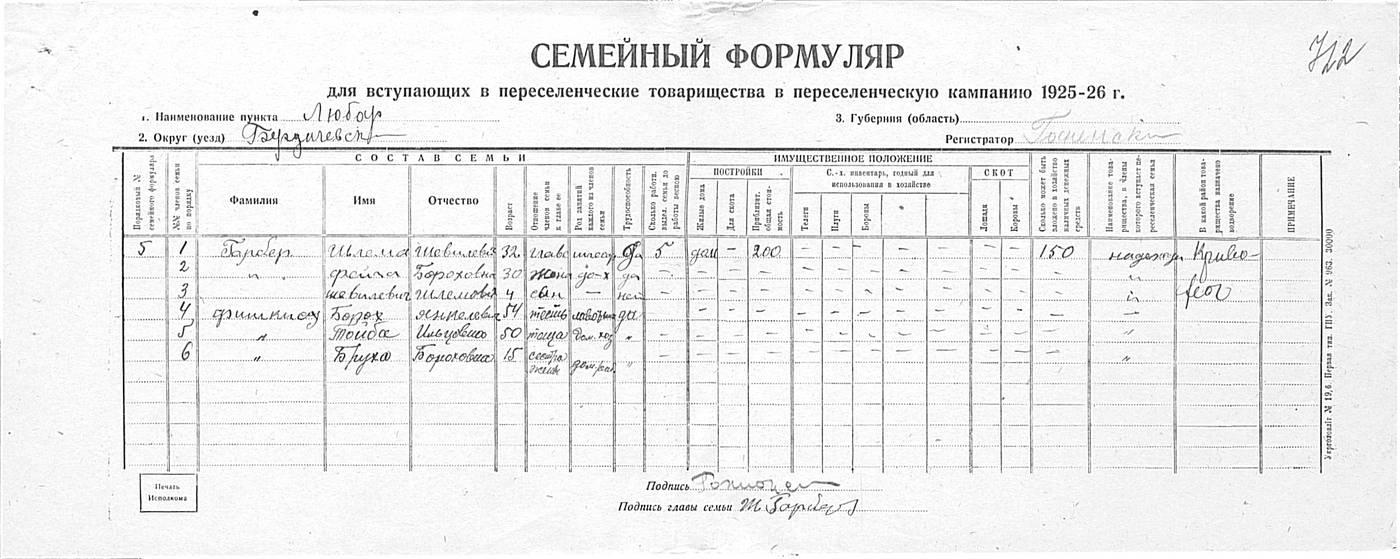 722
СЕМЕЙНЫЙ ФОРМУЛЯР
для вступающих в переселенческие товарищества в переселенческую кампанию 1925-26 г.
1. Наименование пункта Любар
3. Губерния (область)
2. Округ (уезд) Бердичевск
Регистратор
Порядковый № семейного формуляра
№№ членов семьи по порядку
СОСТАВ СЕМЬИ
Фамилия
Имя
Отчество
Возраст
Отношение членов семьи к главе ее
Род занятий каждого из членов семьи
Трудоспособность
Сколько работн. выдел. семья до работы весною
ИМУЩЕСТВЕННОЕ ПОЛОЖЕНИЕ
ПОСТРОЙКИ
Жилые дома
Для скота
Приблизит. общая стоимость
С.-х. инвентарь, годный для использования в хозяйстве
Телеги
Плуги
Бороны
СКОТ
Лошади
Коровы
Сколько может быть вложено в хозяйство наличных денежных средств
Наименование товарищества, в члены которого вступает переселенческая семья
В какой район товарищества назначено водворение
ПРИМЕЧАНИЕ
5 1 Гарбер Шлема Шевилевич 32 глава да 5 дом — 200 — — — — — — — 150 надежда Криво-
2 " Фейга Бороховна 30 жена до-х да — — — — — — — — — — — — — "
3 шевилевич Шлемович 4 сын — нет — — — — — — — — — — — — — "
4 Фишкман Борох Янкелевич 54 тесть да — — — — — — — — — — — — — "
5 " Тойба 50 теща дом. хоз " — — — — — — — — — — — — — "
6 " Бруха Бороховна 15 сестра жены " — — — — — — — — — — — — — "
Печать Исполкома
Подпись
Подпись главы семьи Ш Гарбер
Укрголовліт № 19,6. Первая тип. ГПУ. Зак. № 963. 30000